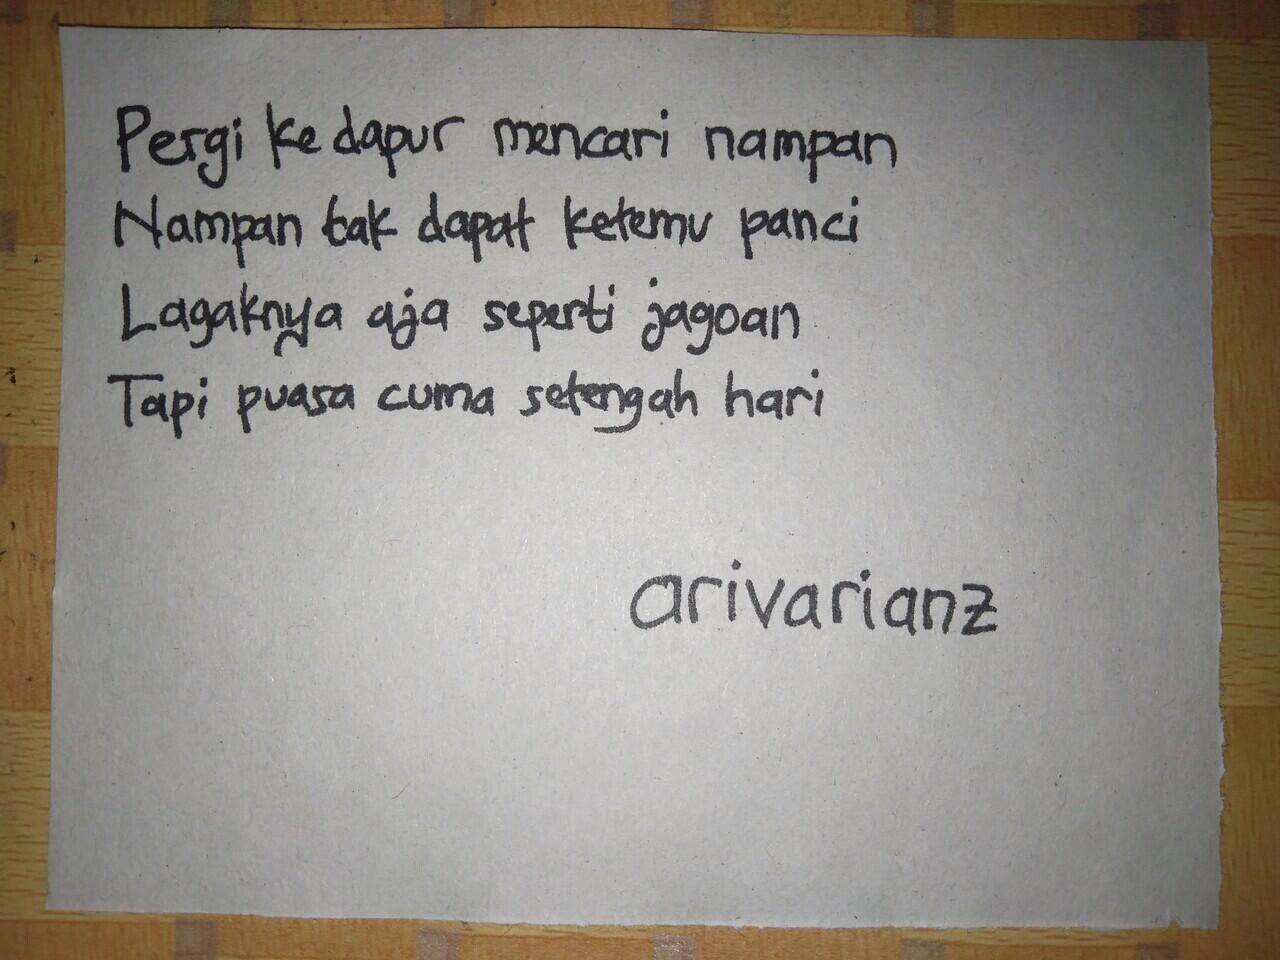 Pergi ke dapur mencari nampan
Nampan tak dapat ketemu panci
Lagaknya aja seperti jagoan
Tapi puasa cuma setengah hari
arivarianz